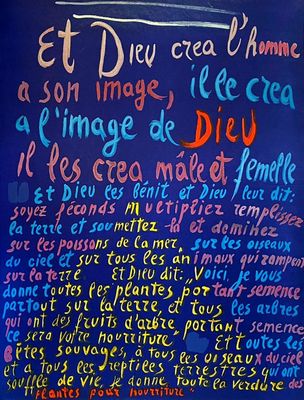 Et Dieu crea l'homme
a son image, il le crea
a l'image de Dieu
il les crea mâle et femelle
Et Dieu les bénit et Dieu leur dit:
soyez féconds multipliez remplissez
la terre et soumettez-la et dominez
sur les poissons de la mer, sur les oiseaux
du ciel et sur tous les animaux qui rampent
sur la terre Et Dieu dit: Voici je vous
donne toutes les plantes portant semence
partout sur la terre, et tous les arbres
qui ont des fruits d'arbre, portant semence
ce sera votre nourriture Et toutes les
Bêtes sauvages, à tous les oiseaux du ciel
et a tous les reptiles terrestres qui ont
souffle de vie, je donne toute la verdure des
plantes pour nourriture"